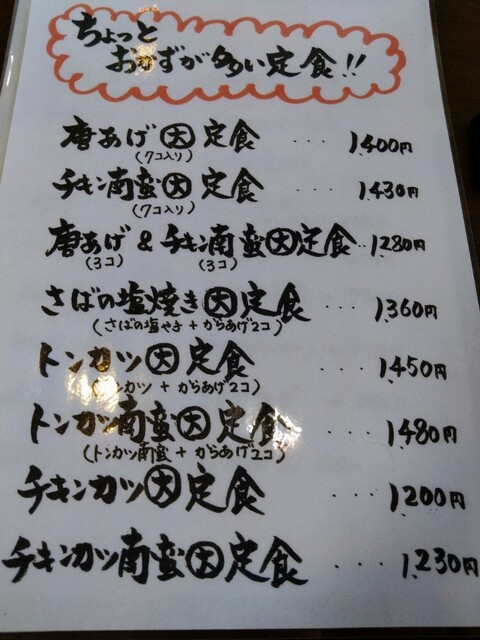 ちょっと
おかずが多い定食!!
唐あげ大定食 ... 1,400円
(7コ入り)
チキン南蛮大定食 ... 1,430円
(7コ入り)
唐あげ&チキン南蛮大定食 .. 1,280円
(3コ) (3コ)
さばの塩焼き大定食 ... 1,360円
(さばの塩やき+からあげ2コ)
トンカツ大定食 ... 1,450円
(トンカツ+からあげ2コ)
トンカツ南蛮大定食 ... 1,480円
(トンカツ南蛮+からあげ2コ)
チキンカツ大定食 .... 1,200円
チキンカツ南蛮大定食 .... 1,230円